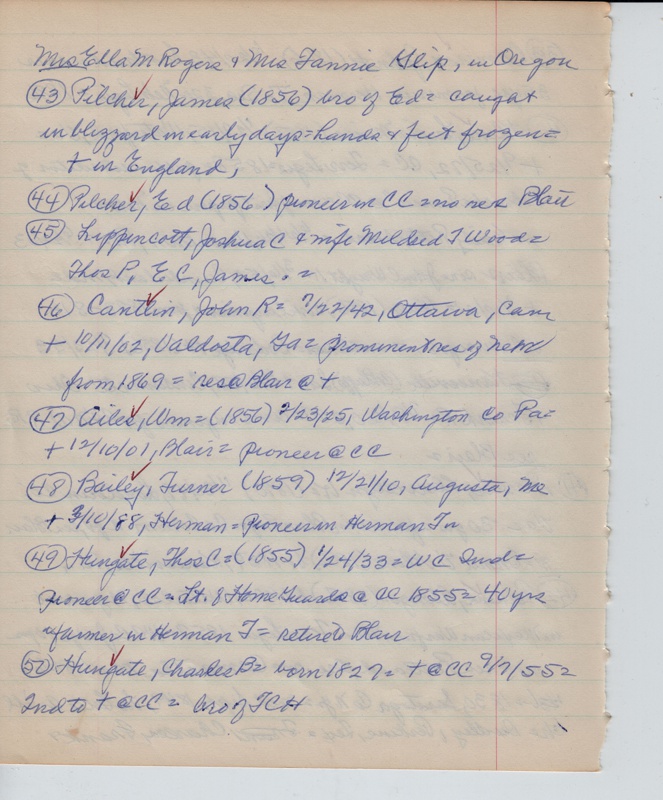 Mrs Ella M Rogers & Mrs Fannie Slip, in Oregon
(43) Pilcher, James (1856) bro of Ed = caught
in blizzard in early days = hands & feet frozen =
+ in England,
(44) Pilcher, Ed (1856) pioneer in CC = no res Blair
(45) Lippincott, Joshua C & wife Mildred T Wood =
Thos P, E C, James. =
(46) Cantlin, John R = 7/22/42, Ottawa, Can
+ 10/11/02, Valdosta, Ga = prominent res of Nebr
from 1869 = res @ Blair @ +
(47) Ailes, Wm = (1856) 2/23/25, Washington Co Pa =
+ 12/10/01, Blair = pioneer @ CC
(48) Bailey, Turner (1859) 12/21/10, Augusta, Me
+ 3/10/88, Herman = pioneer in Herman Tn
(49) Hungate, Thos C = (1855) 1/24/33 = WC Ind =
pioneer @ CC = Lt. of Home Guards @ CC 1855 = 40 yrs
farmer in Herman T = retired to Blair
(50) Hungate, Charles B = born 1827 = + @ CC 9/7/55 =
Ind to + @ CC = bro of TCH